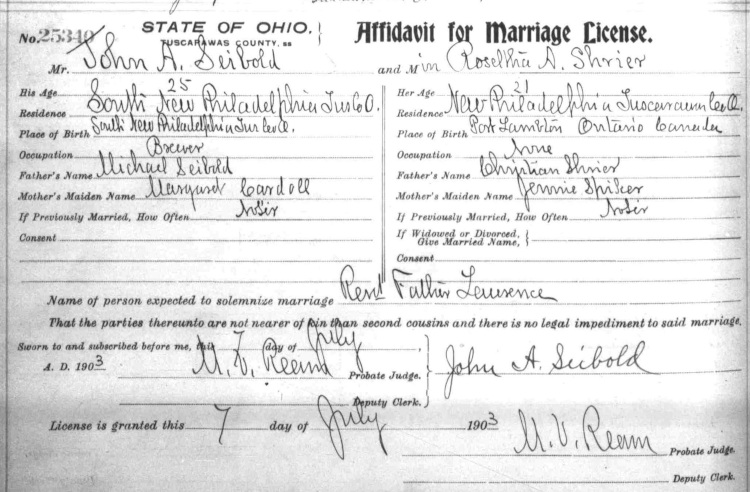 No. 25340 STATE OF OHIO, TUSCARAWAS COUNTY, ss } Affidavit for Marriage License.
Mr. John A. Seibold and M in Roseltha A. Shrier
His Age 25
Residence South New Philadelphia Tus Co O.
Place of Birth South New Philadelphia Tus Co O.
Occupation Brewer
Father's Name Michael Seibold
Mother's Maiden Name Margaret Cardoll
If Previously Married, How Often No Sir
Consent
Her Age 21
Residence New Philadelphia Tuscarawas Co O.
Place of Birth Port Lambton Ontario Canada
Occupation None
Father's Name Christian Shrier
Mother's Maiden Name Jennie Spitser
If Previously Married, How Often No Sir
If Widowed or Divorced, Give Married Name, {
Consent
Name of person expected to solemnize marriage Revd Father Lawrence
That the parties thereunto are not nearer of kin than second cousins and there is no legal impediment to said marriage.
Sworn to and subscribed before me, this 7 day of July,
A. D. 1903 M. V. Ream Probate Judge. John A. Seibold
Deputy Clerk.
License is granted this 7 day of July 1903
M. V. Ream Probate Judge.
Deputy Clerk.